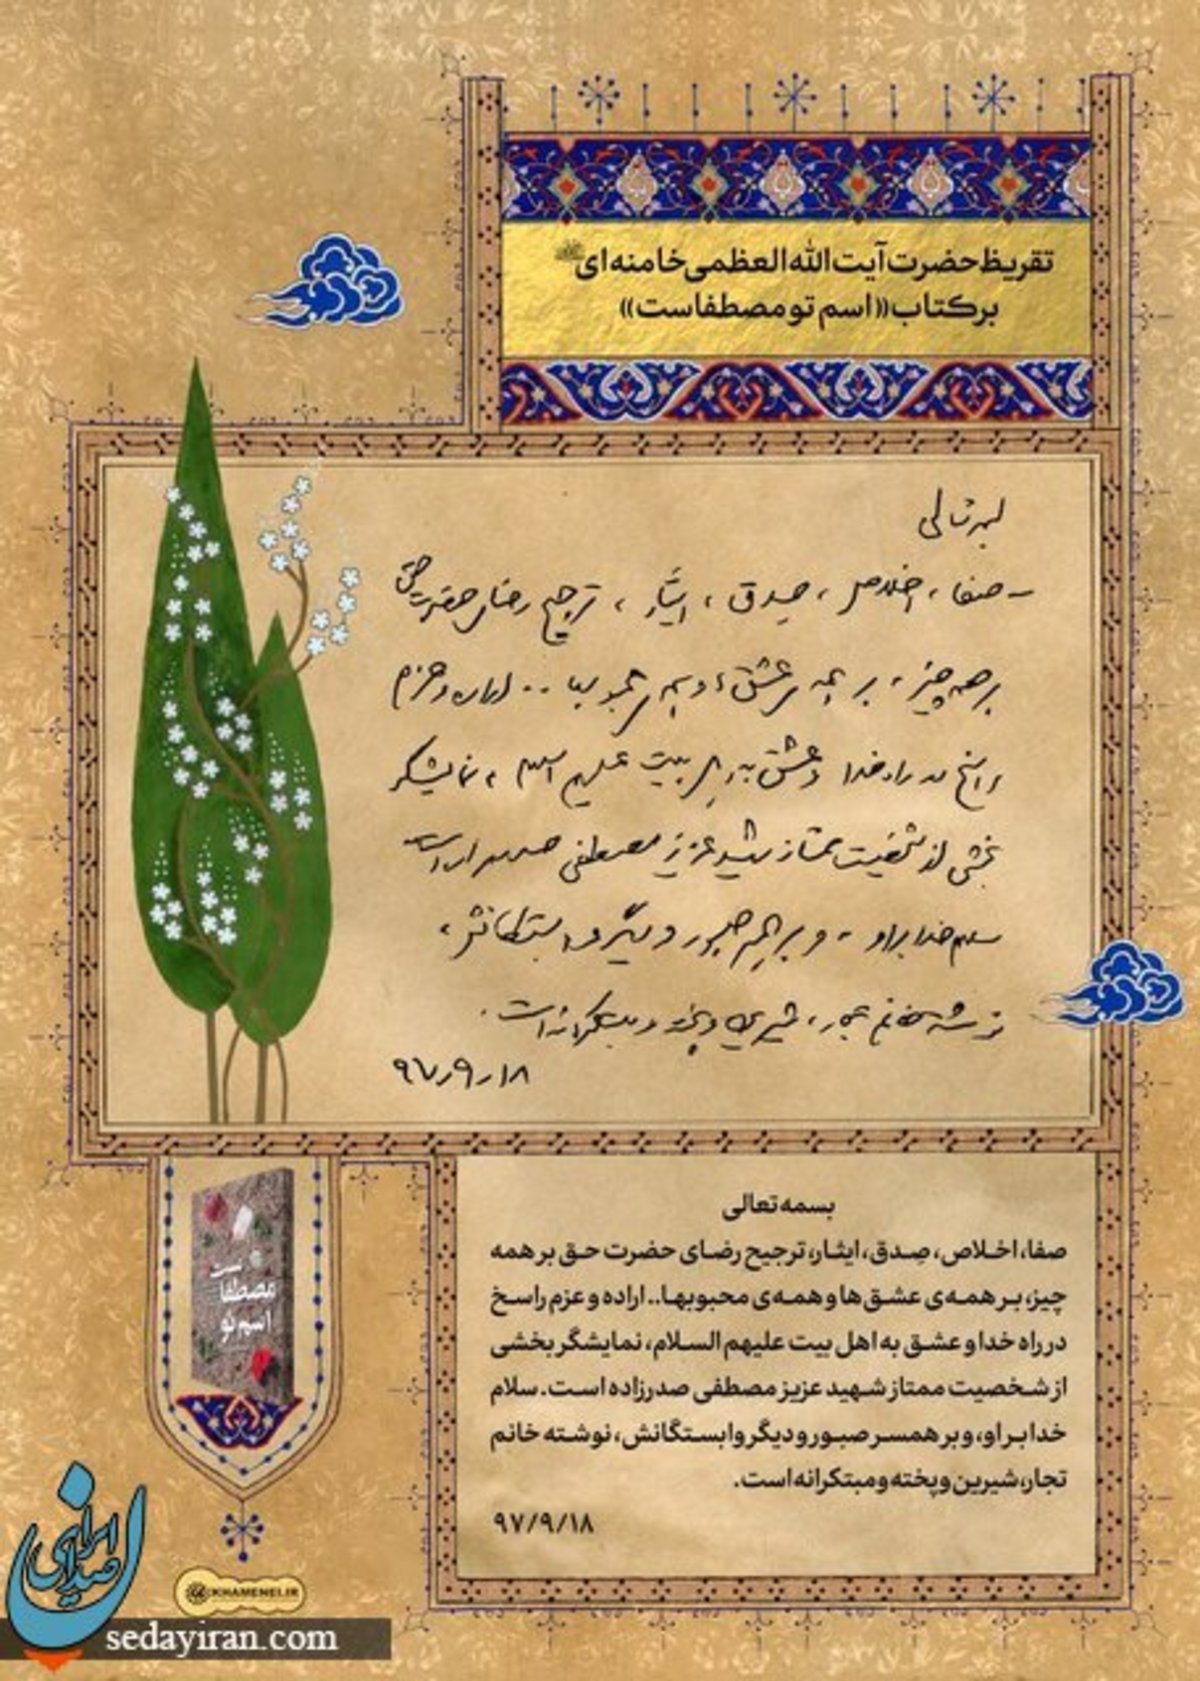 تقریظ حضرت آیت الله العظمی خامنه ای
بر کتاب «اسم تو مصطفاست»
بسمه تعالی
ـ صفا، اخلاص، صدق، ایثار، ترجیح رضای حضرت حق
بر همه چیز، بر همه‌ی عشق‌ها و همه‌ی محبوبها.. اراده و عزم
راسخ در راه خدا و عشق به اهل بیت علیهم السلام، نمایشگر
بخشی از شخصیت ممتاز شهید عزیز مصطفی صدرزاده است
سلام خدا بر او، و بر همسر صبور و دیگر وابستگانش،
نوشته خانم تجار، شیرین و پخته و مبتکرانه است.
۹۷/۹/۱۸
بسمه تعالی
صفا، اخلاص، صِدق، ایثار، ترجیح رضای حضرت حق بر همه
چیز، بر همه‌ی عشق‌ها و همه‌ی محبوبها.. اراده و عزم راسخ
در راه خدا و عشق به اهل بیت علیهم السلام، نمایشگر بخشی
از شخصیت ممتاز شهید عزیز مصطفی صدرزاده است. سلام
خدا بر او، و بر همسر صبور و دیگر وابستگانش، نوشته خانم
تجار، شیرین و پخته و مبتکرانه است.
۹۷/۹/۱۸
اسم تو
مصطفا
ست
@KHAMENEI.IR
صدای ایران
sedayiran.com